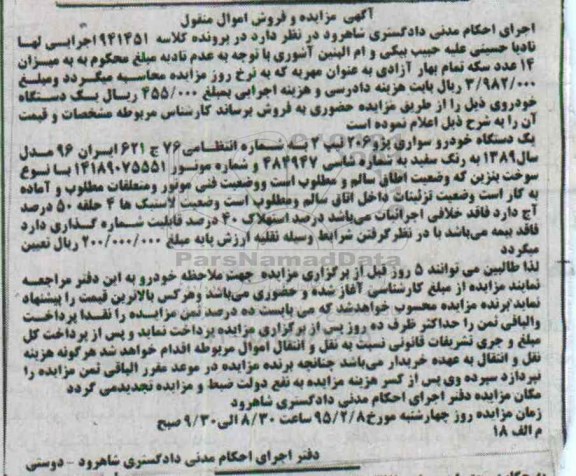 آگهی مزایده و فروش اموال منقول
اجرای احکام مدنی دادگستری شاهرود در نظر دارد در پرونده کلاسه ۹۴۱۴۵۱ اجرایی لها
نادیا حسینی علیه حبیب بیکی و ام البنین آشوری با توجه به عدم تادیه مبلغ محکوم به به میزان
۱۴ عدد سکه تمام بهار آزادی به عنوان مهریه که به نرخ روز مزایده محاسبه میگردد ومبلغ
۳/۹۸۲/۰۰۰ ریال بابت هزینه دادرسی و هزینه اجرایی بمبلغ ۴۵۵/۰۰۰ ریال یک دستگاه
خودروی ذیل را از طریق مزایده حضوری به فروش برساند کارشناس مربوطه مشخصات و قیمت
آن را به شرح ذیل اعلام نموده است
یک دستگاه خودرو سواری پژو۲۰۶ تیپ ۲ به شماره انتظامی۷۶ ج ۶۲۱ ایران ۹۶ مدل
سال۱۳۸۹ به رنگ سفید به شماره شاسی ۴۸۴۹۴۷ و شماره موتور ۱۴۱۸۹۰۷۵۵۵۱ با نوع
سوخت بنزین که وضعیت اطاق سالم و مطلوب است ووضعیت فنی موتور ومتعلقات مطلوب و آماده
به کار است وضعیت تزئینات داخل اتاق سالم ومطلوب است وضعیت لاستیک ها ۴ حلقه ۵۰ درصد
آج دارد فاقد خلافی اجرائیات می‌باشد درصد استهلاک ۴۰ درصد قابلیت شماره گذاری دارد
فاقد بیمه می‌باشد با در نظر گرفتن شرایط وسیله نقلیه ارزش پایه مبلغ ۲۰۰/۰۰۰/۰۰۰ ریال تعیین
میگردد
ParsNamadData
لذا طالبین می توانند ۵ روز قبل از برگزاری مزایده جهت ملاحظه خودرو به این دفتر مراجعه
نمایند مزایده از مبلغ کارشناسی آغاز شده و حضوری می‌باشد وهرکس بالاترین قیمت را پیشنهاد
نماید برنده مزایده محسوب خواهدشد که می بایست ده درصد ثمن مزایده را نقدا پرداخت
والباقی ثمن را حداکثر ظرف ده روز پس از برگزاری مزایده پرداخت نماید و پس از پرداخت کل
مبلغ و جری تشریفات قانونی نسبت به نقل و انتقال اموال مربوطه اقدام خواهد شد هرگونه هزینه
نقل و انتقال به عهده خریدار می‌باشد چنانچه برنده مزایده در موعد مقرر الباقی ثمن مزایده را
نپردازد سپرده وی پس از کسر هزینه مزایده به نفع دولت ضبط و مزایده تجدیدمی گردد
مکان مزایده دفتر اجرای احکام مدنی دادگستری شاهرود
زمان مزایده روز چهارشنبه مورخ۹۵/۲/۸ ساعت ۸/۳۰ الی۹/۳۰ صبح
م الف ۱۸
دفتر اجرای احکام مدنی دادگستری شاهرود - دوستی